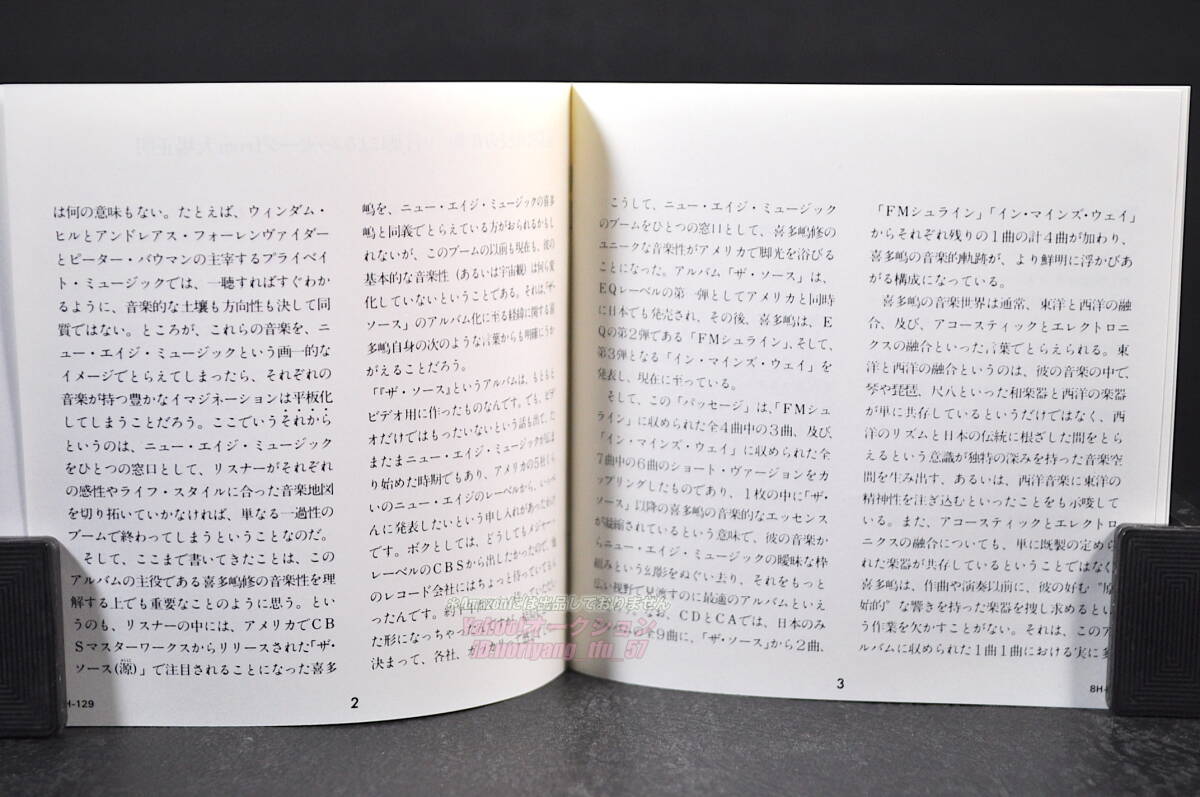 は何の意味もない。たとえば、ウィンダム・
ヒルとアンドレアス・フォーレンヴァイダー
とピーター・バウマンの主宰するプライベイ
ト・ミュージックでは、一聴すればすぐわか
るように、音楽的な土壌も方向性も決して同
質ではない。ところが、これらの音楽を、ニ
ュー・エイジ・ミュージックという画一的な
イメージでとらえてしまったら、それぞれの
音楽が持つ豊かなイマジネーションは平板化
してしまうことだろう。ここでいうそれから
というのは、ニュー・エイジ・ミュージック
をひとつの窓口として、リスナーがそれぞれ
の感性やライフ・スタイルに合った音楽地図
を切り拓いていかなければ、単なる一過性の
ブームで終わってしまうということなのだ。
そして、ここまで書いてきたことは、この
アルバムの主役である喜多嶋修の音楽性を理
解する上でも重要なことのように思う。とい
うのも、リスナーの中には、アメリカでCB
Sマスターワークスからリリースされた「ザ・
ソース(源)」で注目されることになった喜多
嶋を、ニュー・エイジ・ミュージックの喜多
嶋と同義でとらえている方がおられるかもし
れないが、このブームの以前も現在も、彼の
基本的な音楽性（あるいは宇宙観）は何ら変
化していないということである。それは、「ザ・
ソース」のアルバム化に至る経緯に関する喜
多嶋自身の次のような言葉からも明確にうか
がえることだろう。
「『ザ・ソース』というアルバムは、もともと
ビデオ用に作ったものなんです。でも、ビデ
オだけではもったいないという話も出て、た
またまニュー・エイジ・ミュージックが広ま
り始めた時期でもあり、アメリカの5社くら
いのニュー・エイジのレーベルから、いっぺ
んに発表したいという申し入れがあったんで
す。ボクとしては、どうしてもメジャー・
レーベルのCBSから出したかったので、他
のレコード会社にはちょっと待っていてもら
ったんです。約1年
た形になっちゃった
決まって、各社、が
こうして、ニュー・エイジ・ミュージック
のブームをひとつの窓口として、喜多嶋修の
ユニークな音楽性がアメリカで脚光を浴びる
ことになった。アルバム「ザ・ソース」は、
EQレーベルの第一弾としてアメリカと同時
に日本でも発売され、その後、喜多嶋は、E
Qの第2弾である「FMシュライン」、そして、
第3弾となる「イン・マインズ・ウェイ」を
発表し、現在に至っている。
そして、この「パッセージ」は、「FMシュ
ライン」に収められた全4曲中の3曲、及び、
「イン・マインズ・ウェイ」に収められた全
7曲中の6曲のショート・ヴァージョンをカ
ップリングしたものであり、1枚の中に「ザ・
ソース」以降の喜多嶋の音楽的なエッセンス
が凝縮されているという意味で、彼の音楽か
らニュー・エイジ・ミュージックの曖昧な枠
組みという幻影をぬぐい去り、それをもっと
広い視野で見渡すのに最適のアルバムといえ
CDとCAでは、日本のみ
全9曲に、「ザ・ソース」から2曲、
「FMシュライン」「イン・マインズ・ウェイ」
からそれぞれ残りの1曲の計4曲が加わり、
喜多嶋の音楽的軌跡が、より鮮明に浮かびあ
がる構成になっている。
喜多嶋の音楽世界は通常、東洋と西洋の融
合、及び、アコースティックとエレクトロニ
クスの融合といった言葉でとらえられる。東
洋と西洋の融合というのは、彼の音楽の中で、
琴や琵琶、尺八といった和楽器と西洋の楽器
が単に共存しているというだけではなく、西
洋のリズムと日本の伝統に根ざした間をとら
えるという意識が独特の深みを持った音楽空
間を生み出す、あるいは、西洋音楽に東洋の
精神性を注ぎ込むといったことをも示唆して
いる。また、アコースティックとエレクトロ
ニクスの融合についても、単に既製の定めら
れた楽器が共存しているということではなく、
喜多嶋は、作曲や演奏以前に、彼の好む"原
始的"な響きを持った楽器を捜し求めるとい
う作業を欠かすことがない。それは、このア
ルバムに収められた1曲1曲における実に多
H-129
2
3
8H-
※Amazonには出品しておりません
Yahoo!オークション